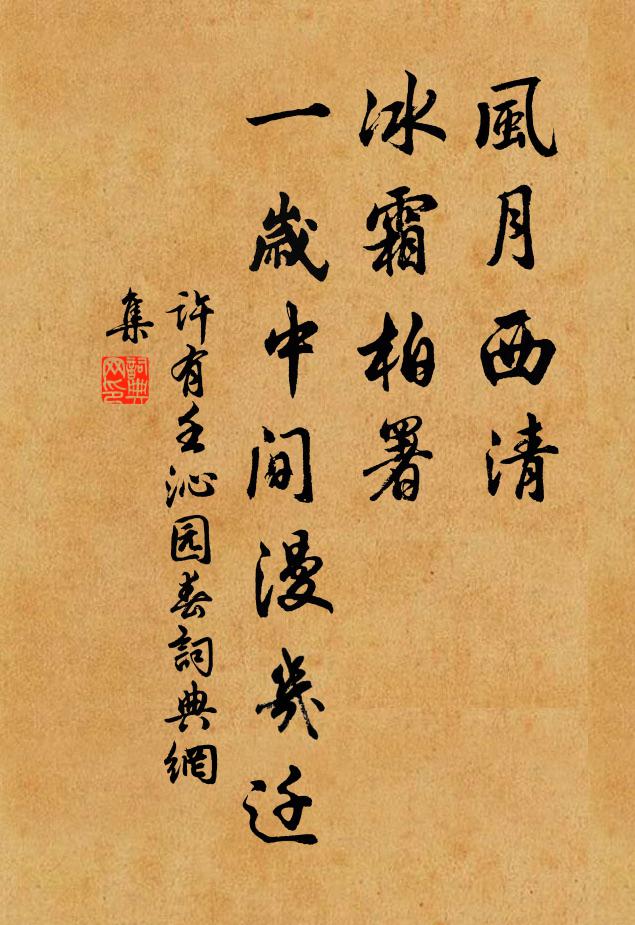 風月西清
冰霜柏署
一歲中间漫幾迁
许有壬沁园春詞典網
集
詞典
网印